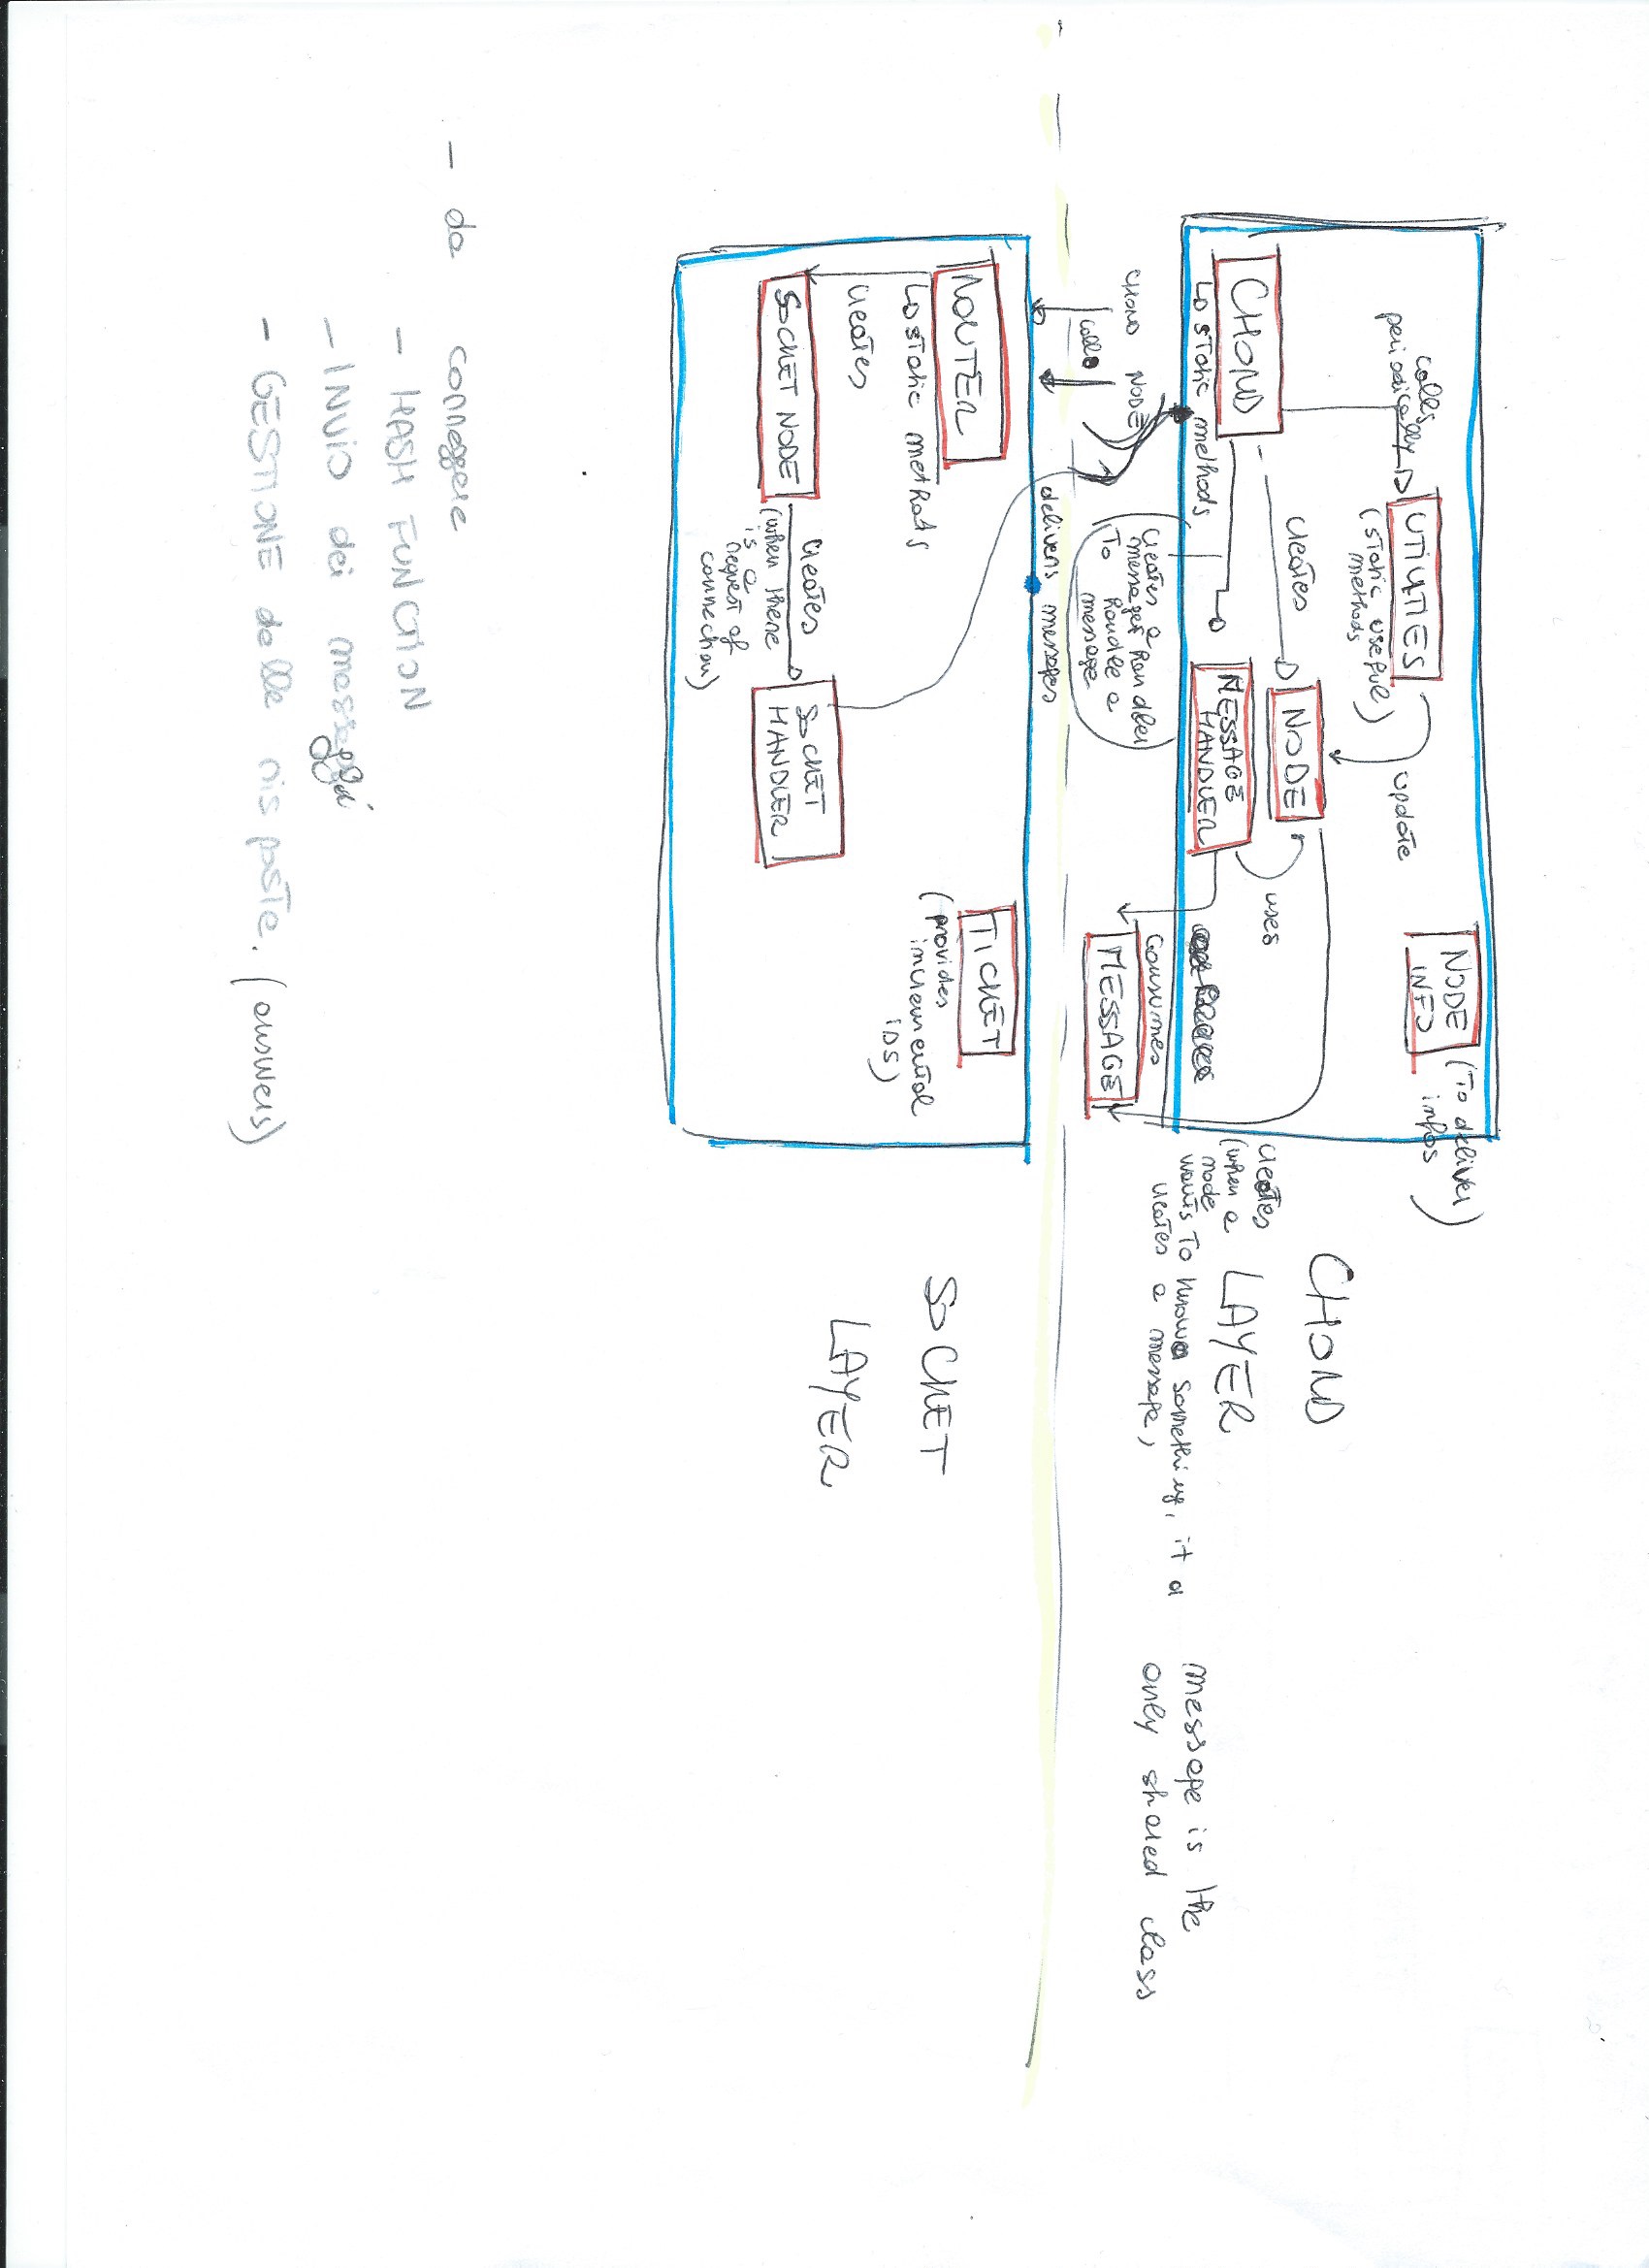 calls
periodically
UTILITIES
(static useful
methods)
update
NODE
INFO
(To deliver
infos)
CHORD
Lo static methods
creates
NODE
MESSAGE
HANDLER
uses
creates a
message handler
To handle a
message
consumes
MESSAGE
creates
(when a
node
wants To know something, it a
creates a message)
CHORD
LAYER
message is the
only shared class
CHORD NODE
calls
delivers messages
ROUTER
Lo static methods
creates
SOCKET NODE
creates
(when there
is a
request of
connection)
SOCKET
HANDLER
TICKET
(provides
incremental
IDS)
SOCKET
LAYER
- da correggere
- HASH FUNCTION
- INVIO dei messaggi
- GESTIONE delle risposte. (answers)